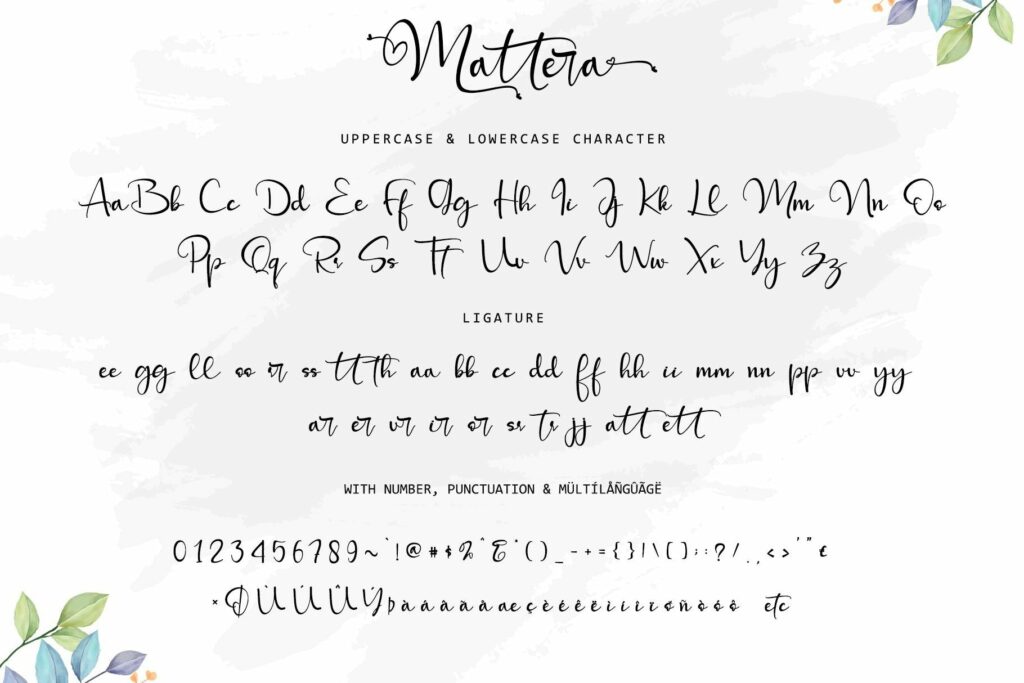 Mattera
UPPERCASE & LOWERCASE CHARACTER
Aa Bb Cc Dd Ee Ff Gg Hh Ii Jj Kk Ll Mm Nn Oo
Pp Qq Rr Ss Tt Uu Vv Ww Xx Yy Zz
LIGATURE
ee gg ll oo ir ss tt th aa bb cc dd ff hh ii mm nn pp vv yy
ar er vr ir or sr tr jj att ett
WITH NUMBER, PUNCTUATION & MÜLTÍLÅÑGÛÃGË
0123456789~`!@#$%^&*()_-+={}|\[];:?/.,<>'"£
×ØÙÚÛÝþàáâãäåæçèéêëìíîïðñòóô etc